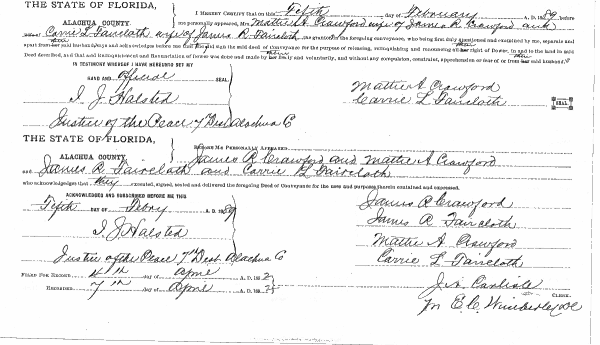 THE STATE OF FLORIDA,
ALACHUA COUNTY.
I HEREBY CERTIFY that on this Fifth day of February A. D. 1889 before
me personally appeared, Mattie A. Crawford wife of James R Crawford and
Carrie L. Faircloth wife of James R. Faircloth, as grantor in the foregoing conveyance, who being first duly questioned and examined by me, separate and
apart from her said husband says and acknowledges before me that she did sign the said deed of Conveyance for the purpose of releasing, relinquishing and renouncing all her right of Dower, in and to the land in said
Deed described, and that said Relinquishment and Renunciation of Dower was done and made by freely and voluntarily, and without any compulsion, constraint, apprehension or fear of or from her said husband,
IN TESTIMONY WHEREOF I HAVE HEREUNTO SET MY
HAND AND official SEAL
Mattie A Crawford
I. J. Halsted
Carrie L Faircloth
SEAL
Justice of the Peace 7th Dist. Alachua Co
THE STATE OF FLORIDA,
ALACHUA COUNTY.
BEFORE ME PERSONALLY APPEARED
James R Crawford and Mattie A Crawford
and James R Faircloth and Carrie L Faircloth
who acknowledges that they executed, signed, sealed and delivered the foregoing Deed of Conveyance for the uses and purposes therein contained and expressed.
ACKNOWLEDGED AND SUBSCRIBED BEFORE ME THIS
James R Crawford
Fifth DAY OF Febry A. D. 1889
James R Faircloth
I. J Halsted
Mattie A. Crawford
Justice of the Peace 7th Dist Alachua Co
Carrie L Faircloth
FILED FOR RECORD 4th day of April A. D. 188
J. A. Carlisle CLERK.
RECORDED 7th day of April A. D. 188
Pr E. C. Wimberley DC